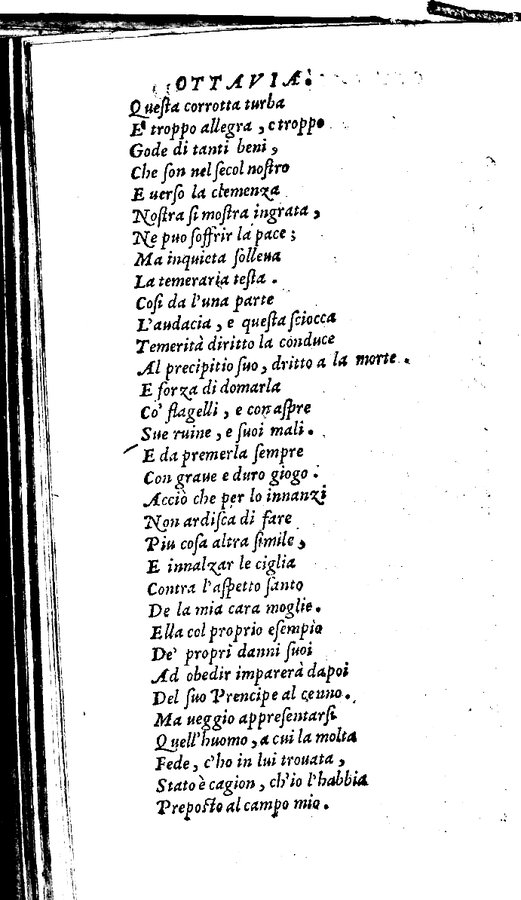 OTTAVIA.
Queſta corrotta turba
E' troppo allegra, e troppo
Gode di tanti beni,
Che ſon nel ſecol noſtro
E uerſo la clemenza
Noſtra ſi moſtra ingrata,
Ne puo ſoffrir la pace;
Ma inquieta ſolleua
La temeraria teſta.
Coſi da l'una parte
L'audacia, e queſta ſciocca
Temerità diritto la conduce
Al precipitio ſuo, dritto a la morte.
E forza di domarla
Co' flagelli, e con aſpre
Sue ruine, e ſuoi mali.
E da premerla ſempre
Con graue e duro giogo:
Acciò che per lo innanzi
Non ardiſca di fare
Piu coſa altra ſimile,
E innalzar le ciglia
Contra l'aſpetto ſanto
De la mia cara moglie.
Ella col proprio eſempio
De' propri danni ſuoi
Ad obedir imparerà dapoi
Del ſuo Prencipe al cenno.
Ma ueggio appreſentarſi
Quell'huomo, a cui la molta
Fede, c'ho in lui trouata,
Stato è cagion, ch'io l'habbia
Prepoſto al campo mio.